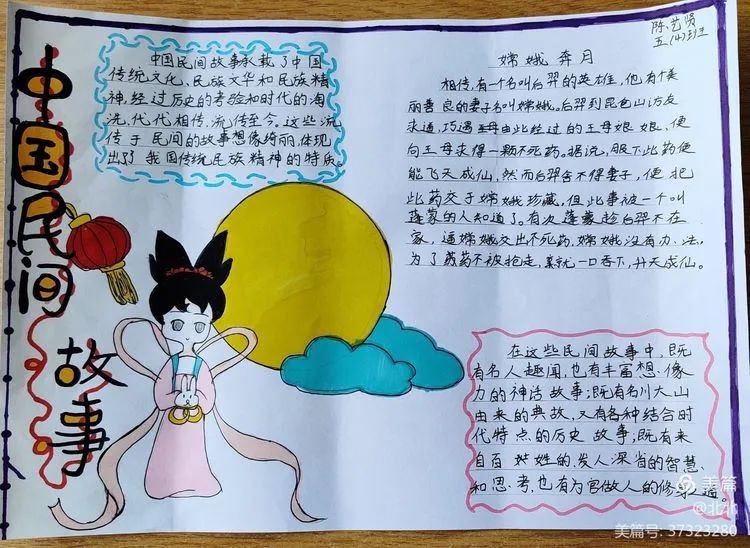 中国民间故事
陈艺贤
五(4)班
中国民间故事承载了中国
传统文化、民族文华和民族精
神,经过历史的考验和时代的淘
洗,代代相传,流传至今,这些流
传于民间的故事想像绮丽,体现
出了我国传统民族精神的特质。
嫦娥奔月
相传,有一个名叫后羿的英雄,他有个美
丽善良的妻子名叫嫦娥。后羿到昆仑山访友
求道,巧遇王母由此经过的王母娘娘,便
向王母求得一颗不死药。据说,服下此药便
能飞天成仙,然而后羿舍不得妻子,便把
此药交于嫦娥珍藏,但此事被一个叫
蓬蒙的人知道了。有次蓬蒙趁后羿不在
家,逼嫦娥交出不死药,嫦娥没有办法,
为了药不被抢走,就一口吞下,升天成仙。
在这些民间故事中,既
有名人趣闻,也有丰富想像
力的神话故事;既有名川大山
由来的典故,又有各种结合时
代特点的历史故事;既有来
自百姓的发人深省的智慧
和思考,也有为官做人的修身之道。
美篇
@北北
美篇号: 37323280